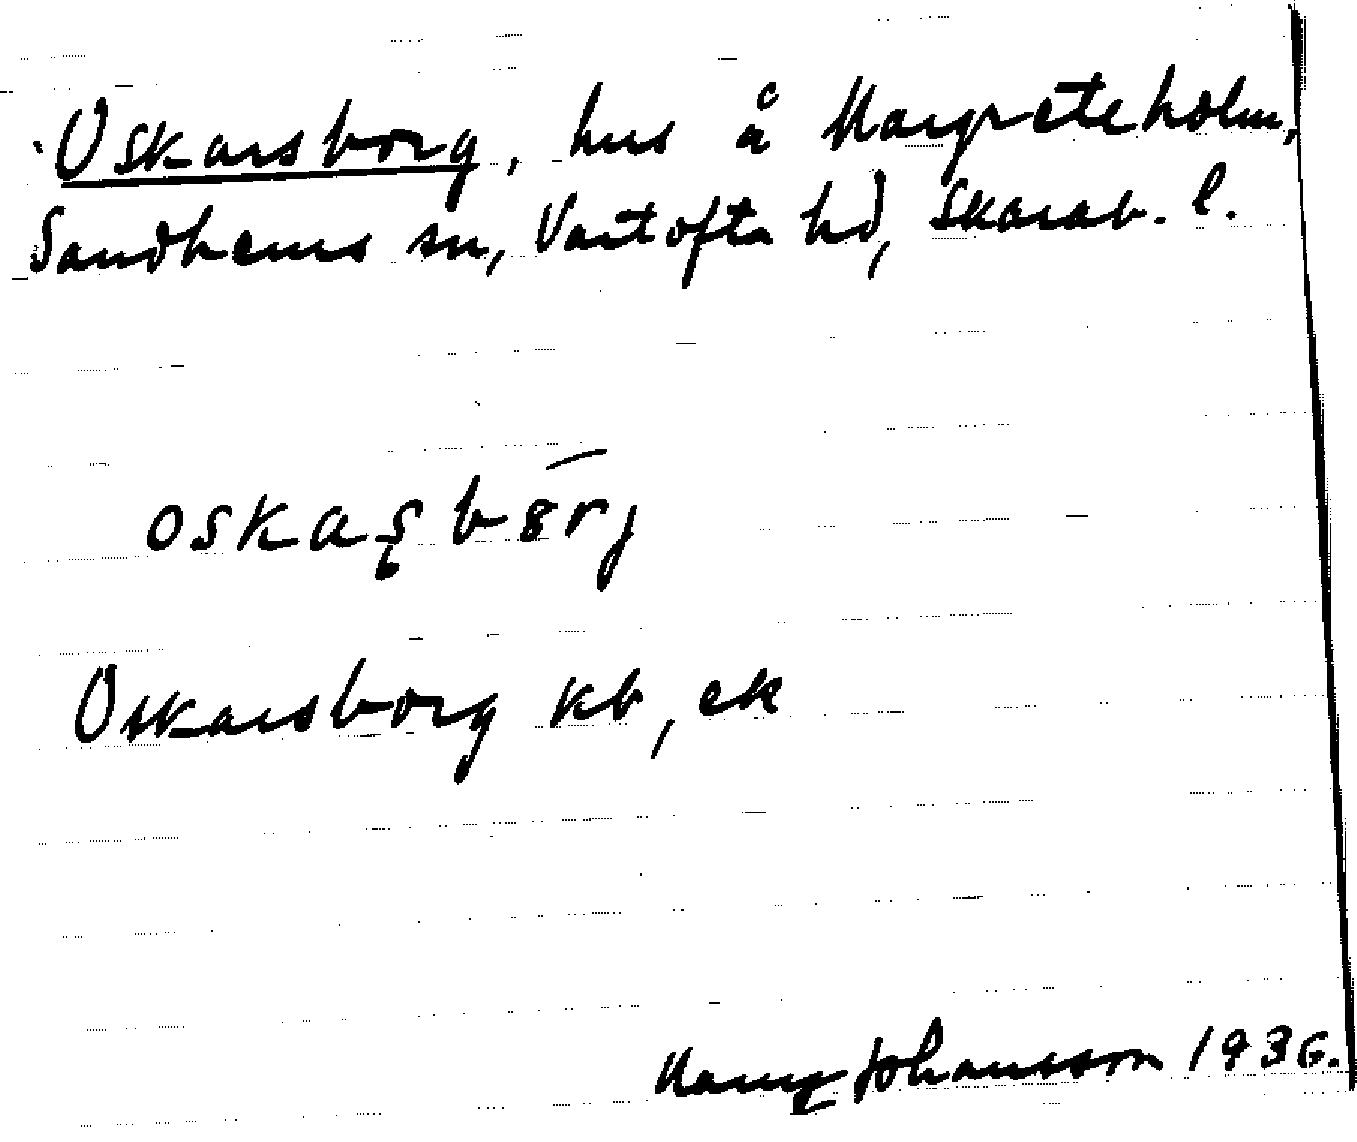 Oskarsborg, hus å Margreteholm,
Sandhems sn, Vartofta hd, Skarab. l.
oskaʂbo̅rj
Oskarsborg kb, ek
Johansson 1936.